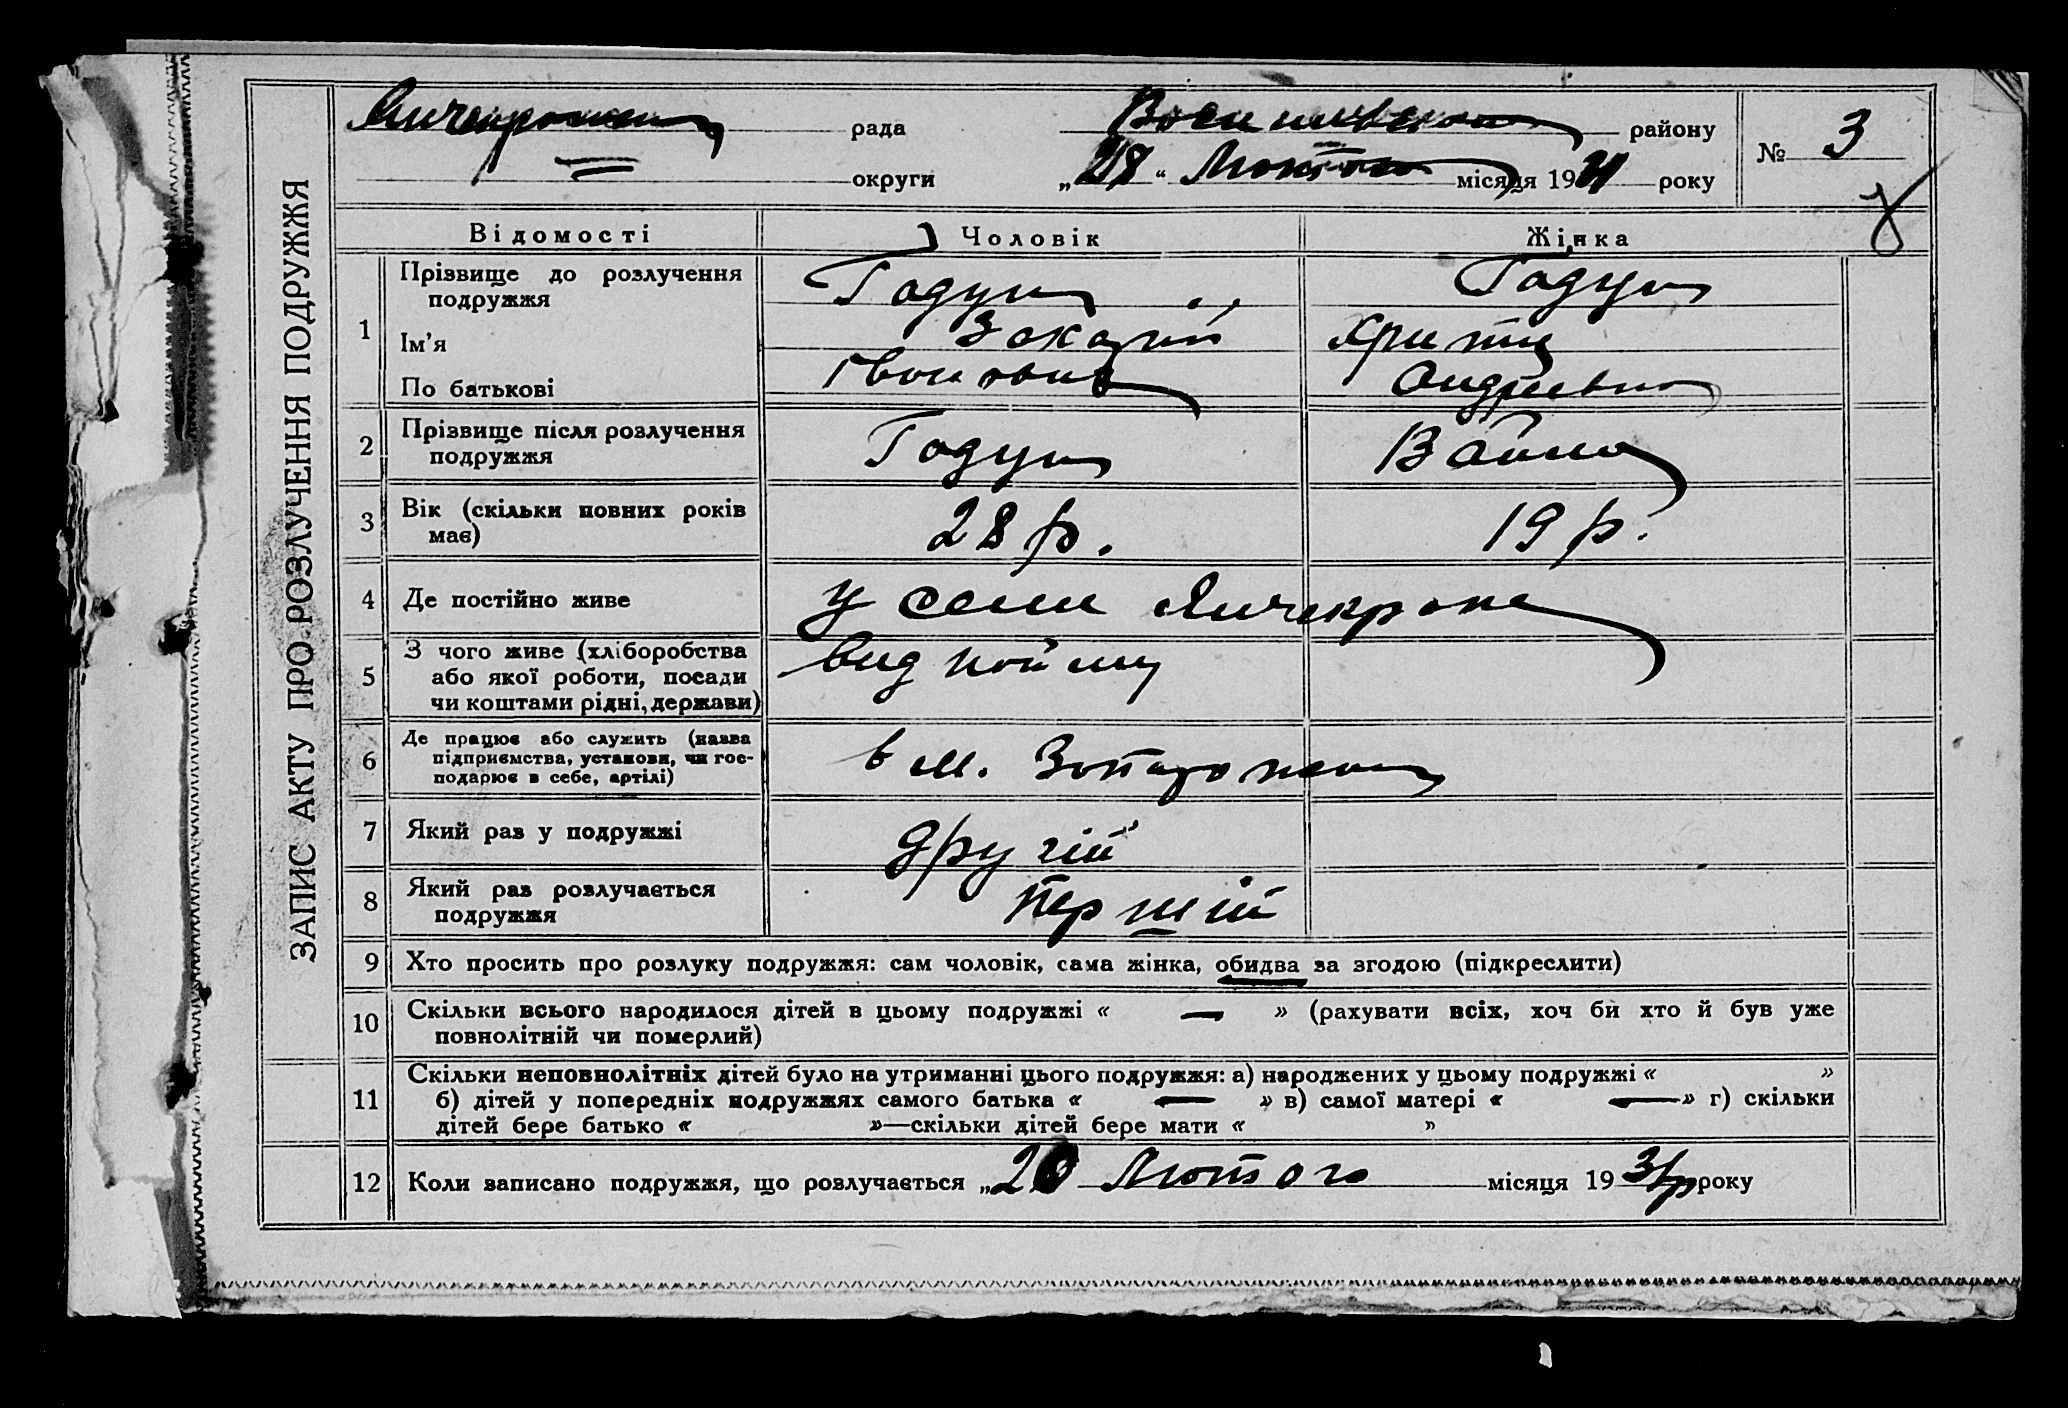 ЗАПИС АКТУ ПРО РОЗЛУЧЕННЯ ПОДРУЖЖЯ
рада району № 3
округи „28“ Лютого місяця 1931 року
Відомості Чоловік Жінка
1 Прізвище до розлучення подружжя Годун Годун
Ім’я Захарій Христя
По батькові Андріевна
2 Прізвище після розлучення подружжя Годун
3 Вік (скільки повних років має) 28 р. 19 р.
4 Де постійно живе у сели Янчекраке
5 З чого живе (хліборобства
або якої роботи, посади
чи коштами рідні, держави)
6 Де працює або служить (назва
підприємства, установи, чи гос-
подарює в себе, артілі)
в м. Запорожжи
7 Який раз у подружжі другій
8 Який раз розлучається подружжя першій
9 Хто просить про розлуку подружжя: сам чоловік, сама жінка, обидва за згодою (підкреслити)
10 Скільки всього народилося дітей в цьому подружжі « — » (рахувати всіх, хоч би хто й був уже
повнолітній чи померлий)
11 Скільки неповнолітніх дітей було на утриманні цього подружжя: а) народжених у цьому подружжі « »
б) дітей у попередніх подружжях самого батька « — » в) самої матері « — » г) скільки
дітей бере батько « »—скільки дітей бере мати « »
12 Коли записано подружжя, що розлучається „ Лютого місяця 1931р року